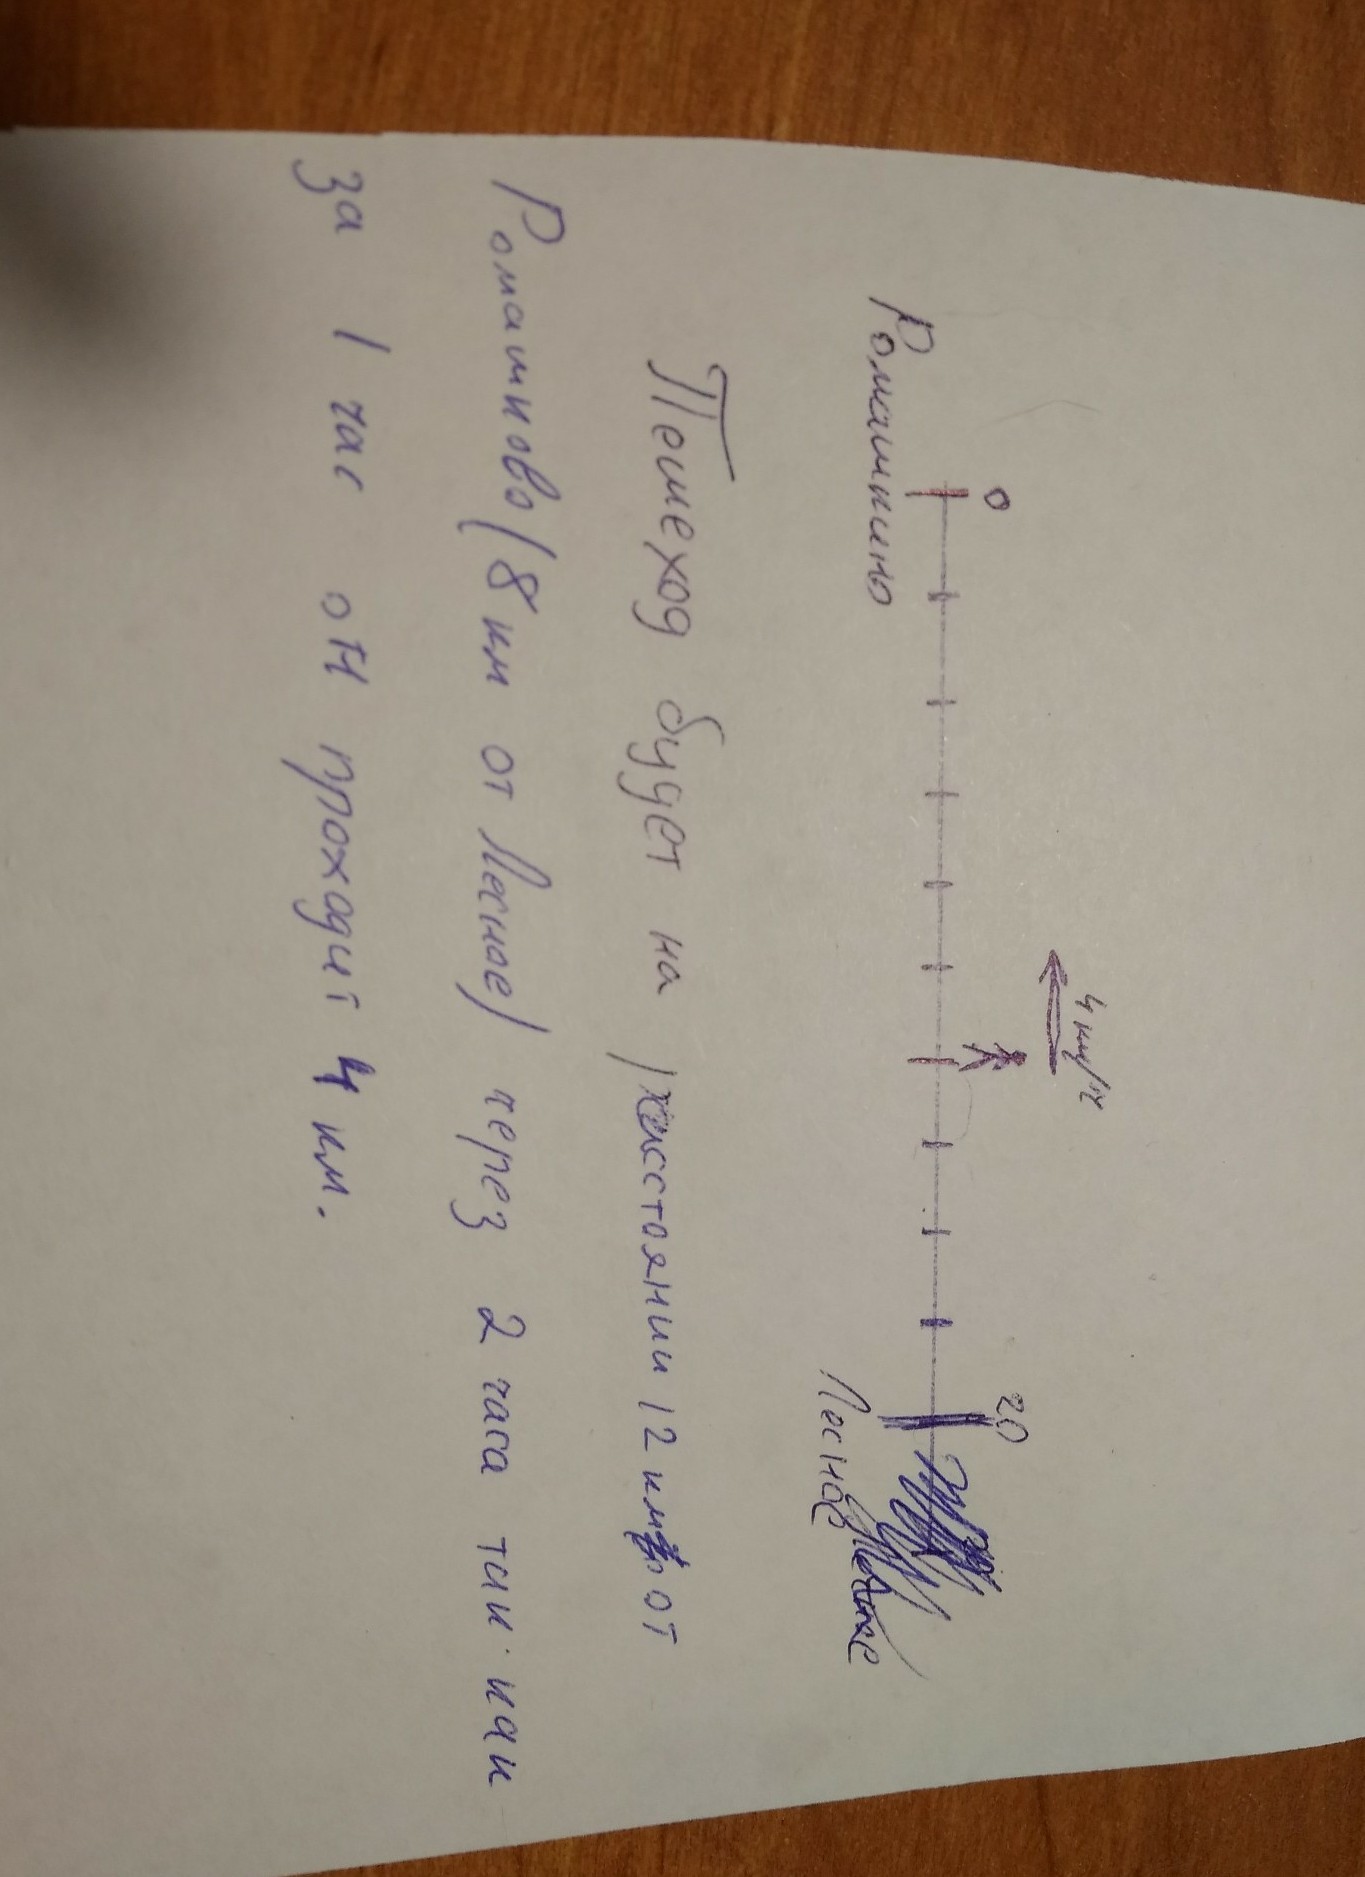 4 км/ч
0 20
Ромашкино Лесное
Пешеход будет на расстоянии 12 км от
Ромашково (8 км от Лесное) через 2 часа так как
за 1 час он проходит 4 км.